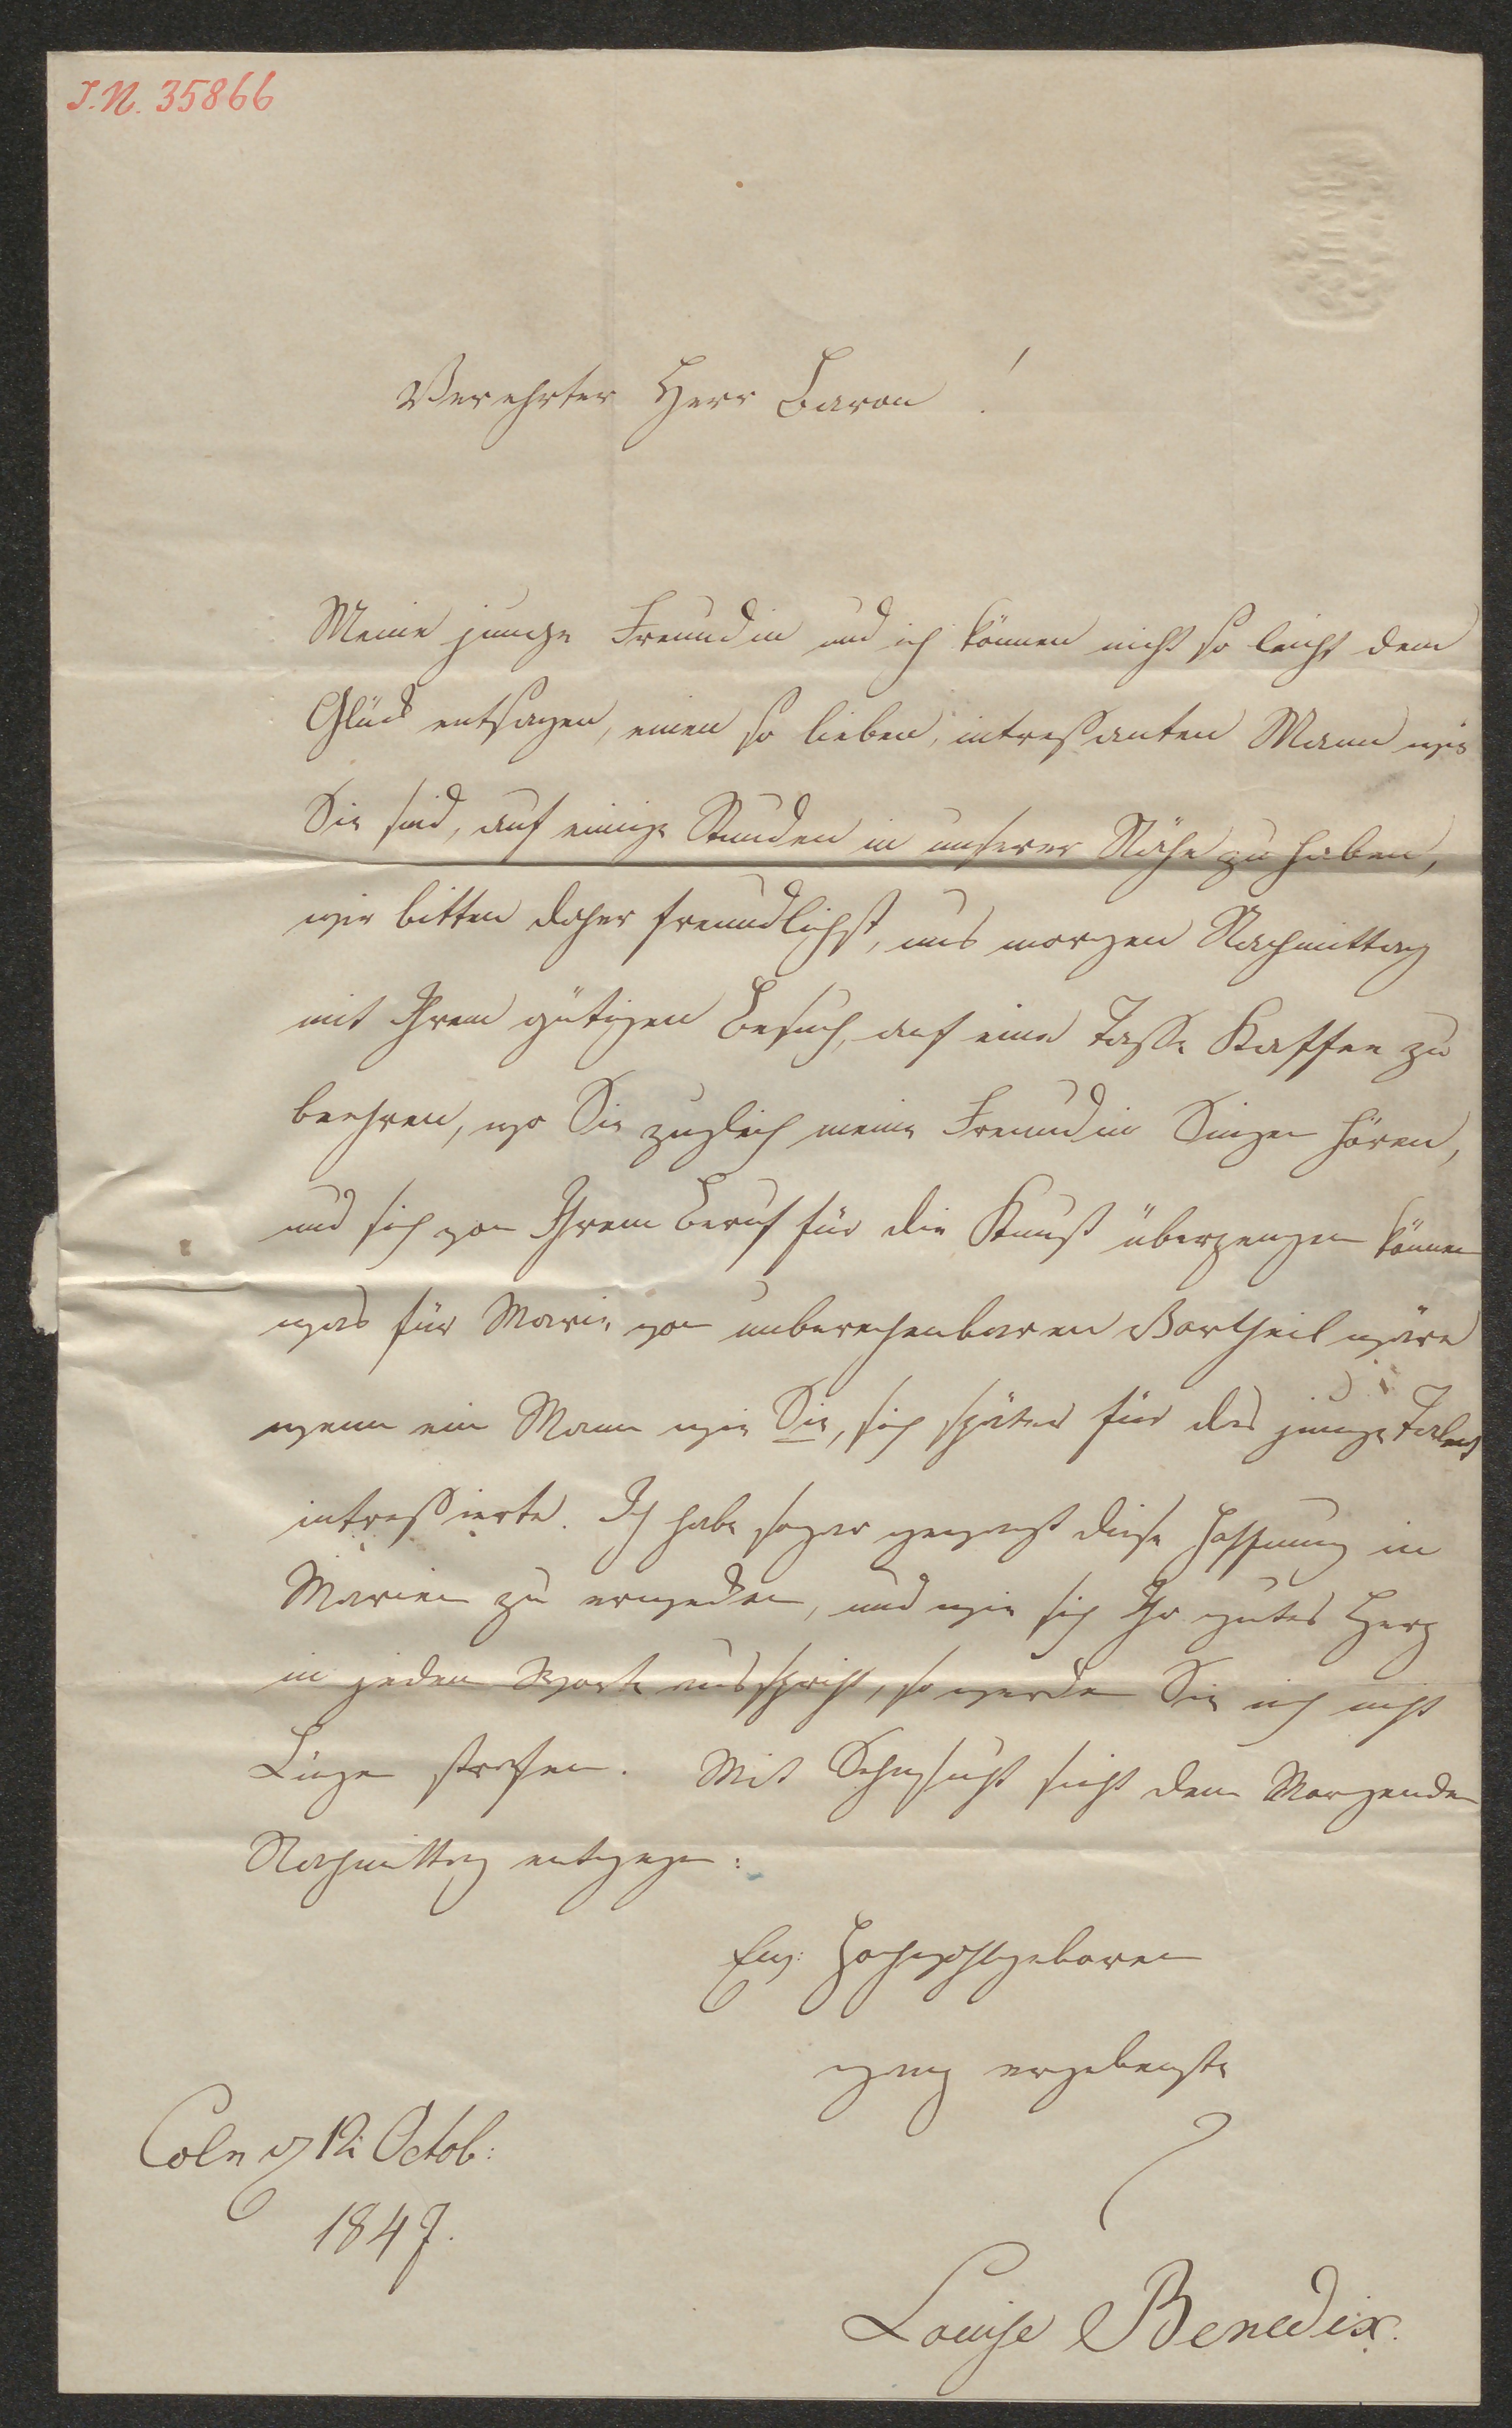 I.N. 35866
Verehrter Herr Baron!
Meine junge Freundin und ich können nicht so leicht dem
Glück entsagen, einen so lieben, intressanten Mann wie
Sie sind, auf einige Stunden in unserer Nähe zu haben,
wir bitten daher freundlichst, uns morgen Nachmittag
mit Ihrem gütigen Besuch, auf eine Tasse Kaffee zu
beehren, wo Sie zugleich meine Freundin Singen hören,
und sich von Ihrem Beruf für die Kunst überzeugen können
was für Marie von unberechenbaren Vortheil wäre
wenn ein Mann wie Sie, sich später für das junge Talent
intressierte. Ich habe sogar gewagt diese Hoffnung in
Marien zu erwecken, und wie sich Ihr gutes Herz
in jeden Worte ausspricht, so werden Sie mich nicht
Lügen strafen. Mit Sehnsucht sieht dem Morgenden
Nachmittag entgegen:
Euw: Hochwohlgeboren
ganz ergebenste
Coln d 12 Octob:
1847.
Louise Benedix.